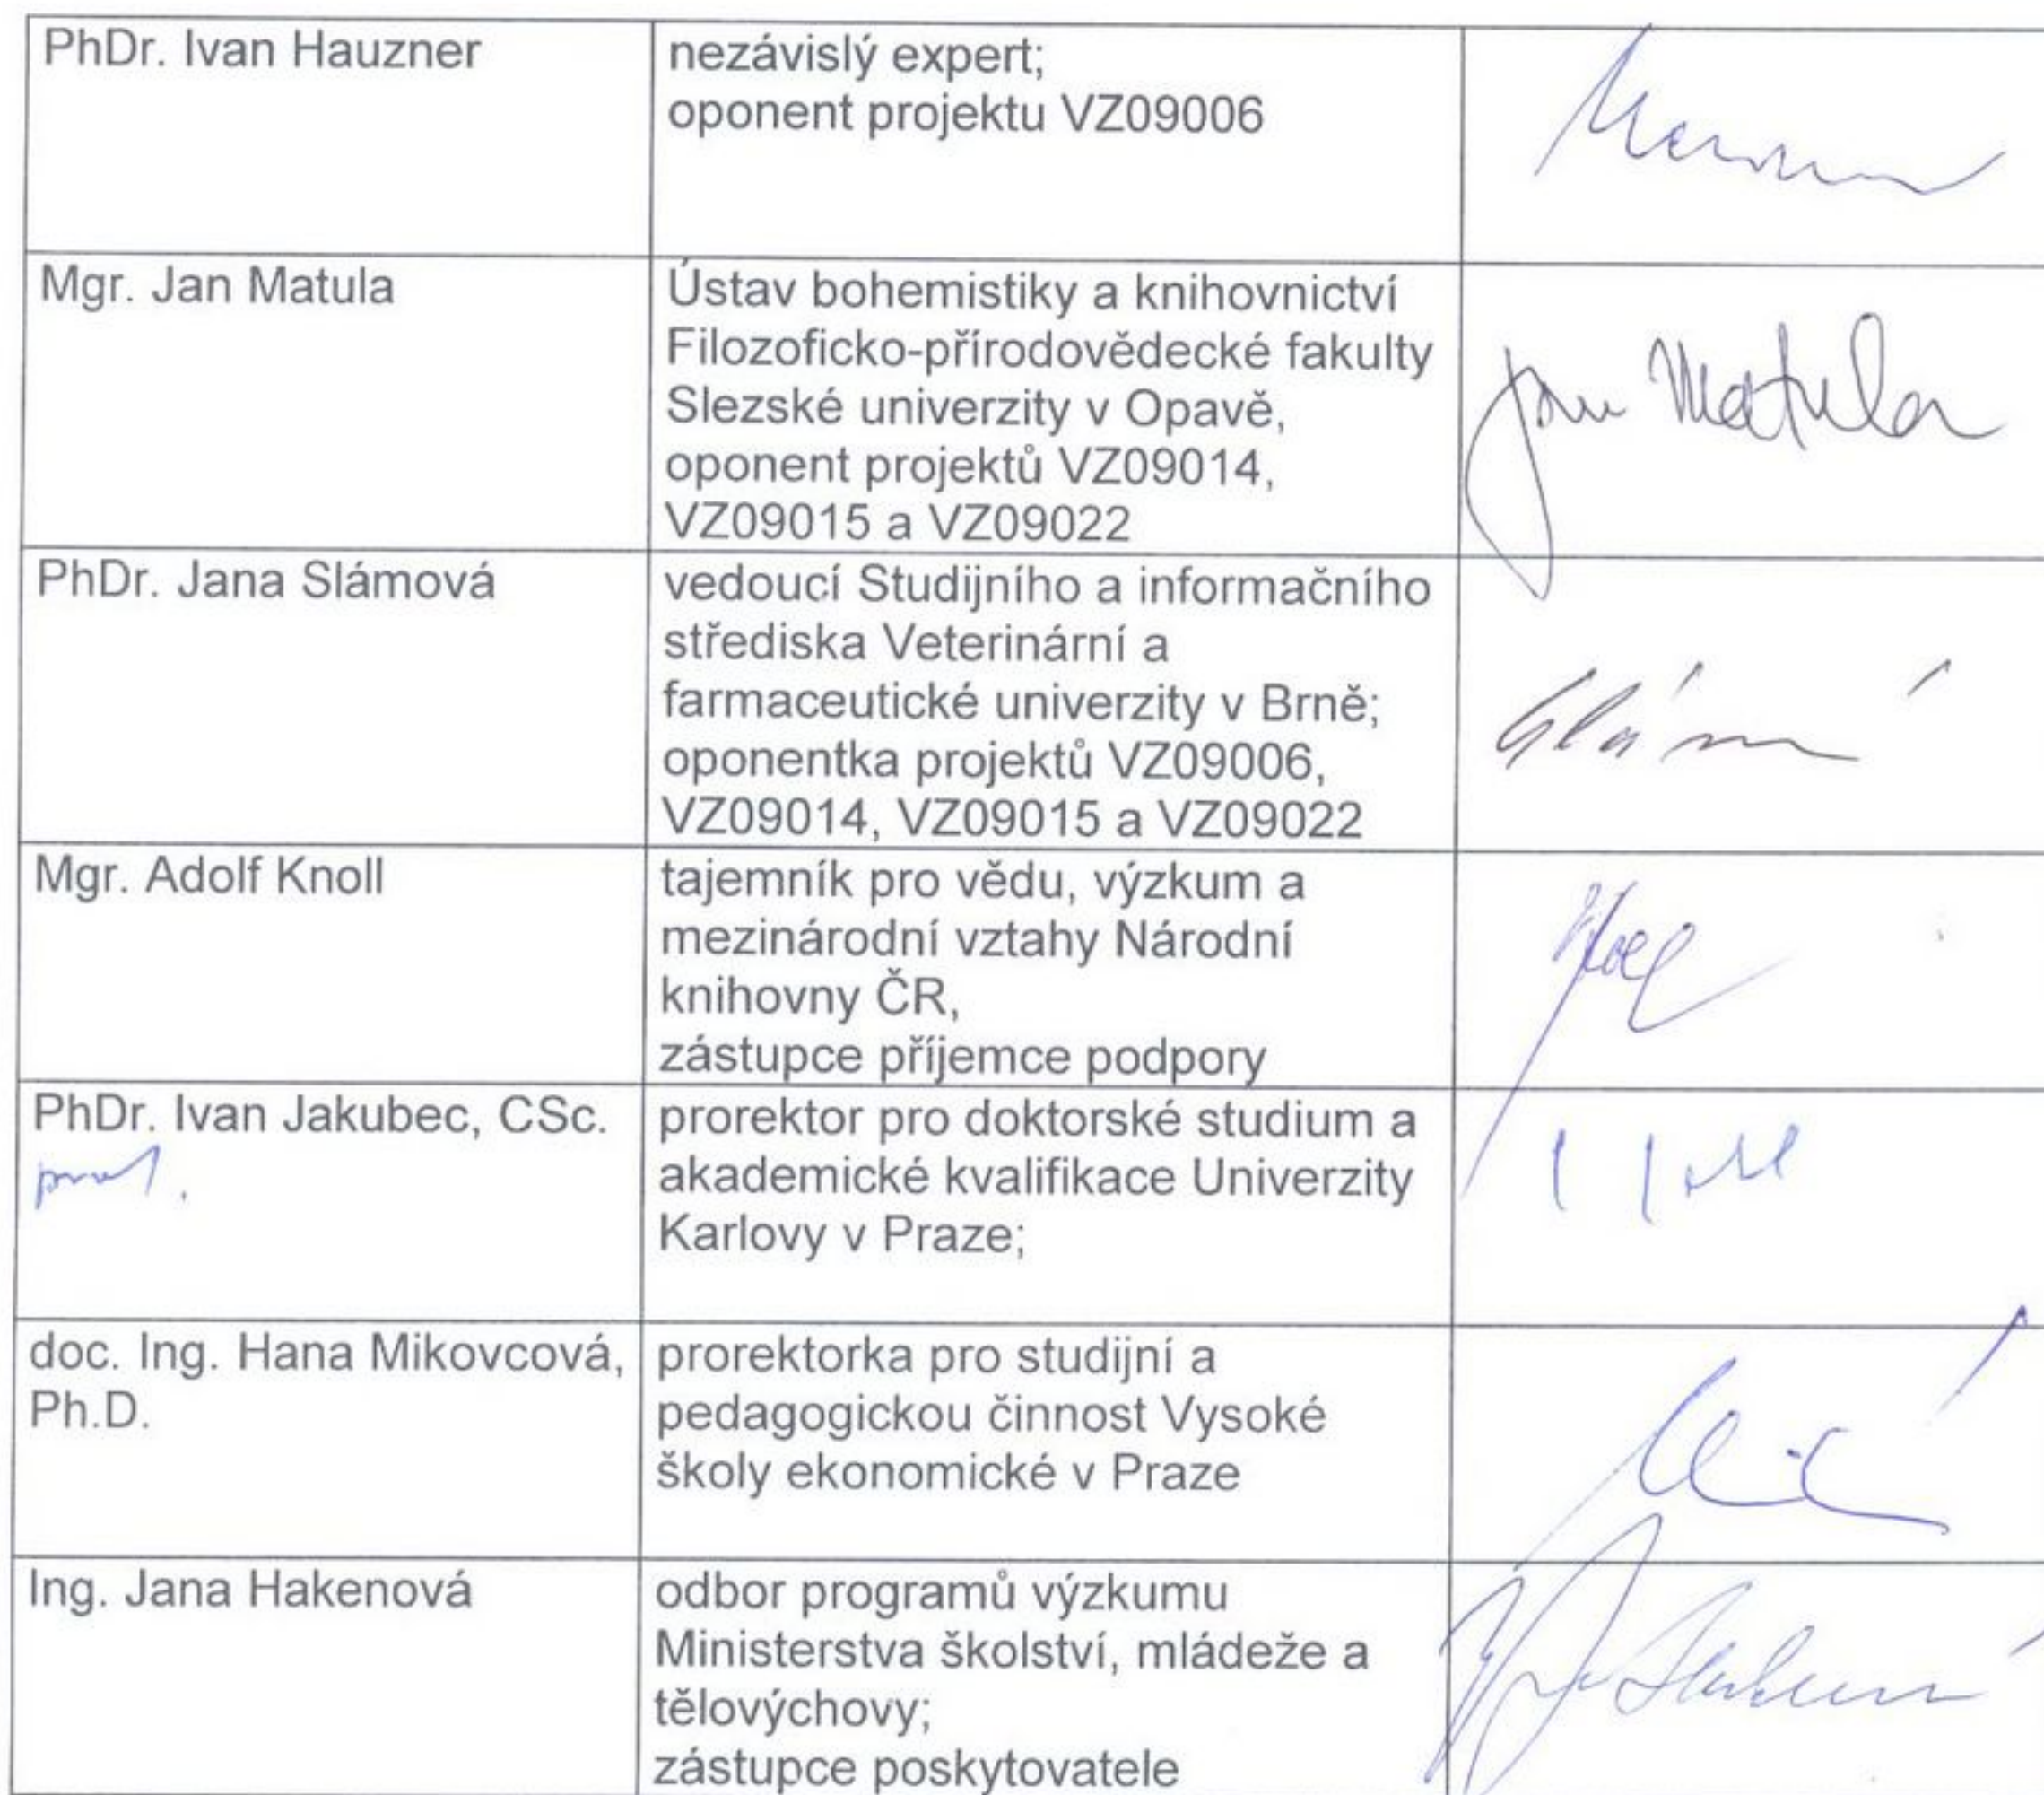 PhDr. Ivan Hauzner
nezávislý expert;
oponent projektu VZ09006
Mgr. Jan Matula
Ústav bohemistiky a knihovnictví
Filozoficko-přírodovědecké fakulty
Slezské univerzity v Opavě,
oponent projektů VZ09014,
VZ09015 a VZ09022
Jan Matula
PhDr. Jana Slámová
vedoucí Studijního a informačního
střediska Veterinární a
farmaceutické univerzity v Brně;
oponentka projektů VZ09006,
VZ09014, VZ09015 a VZ09022
Mgr. Adolf Knoll
tajemník pro vědu, výzkum a
mezinárodní vztahy Národní
knihovny ČR,
zástupce příjemce podpory
PhDr. Ivan Jakubec, CSc.
prorektor pro doktorské studium a
akademické kvalifikace Univerzity
Karlovy v Praze;
doc. Ing. Hana Mikovcová,
Ph.D.
prorektorka pro studijní a
pedagogickou činnost Vysoké
školy ekonomické v Praze
Ing. Jana Hakenová
odbor programů výzkumu
Ministerstva školství, mládeže a
tělovýchovy;
zástupce poskytovatele